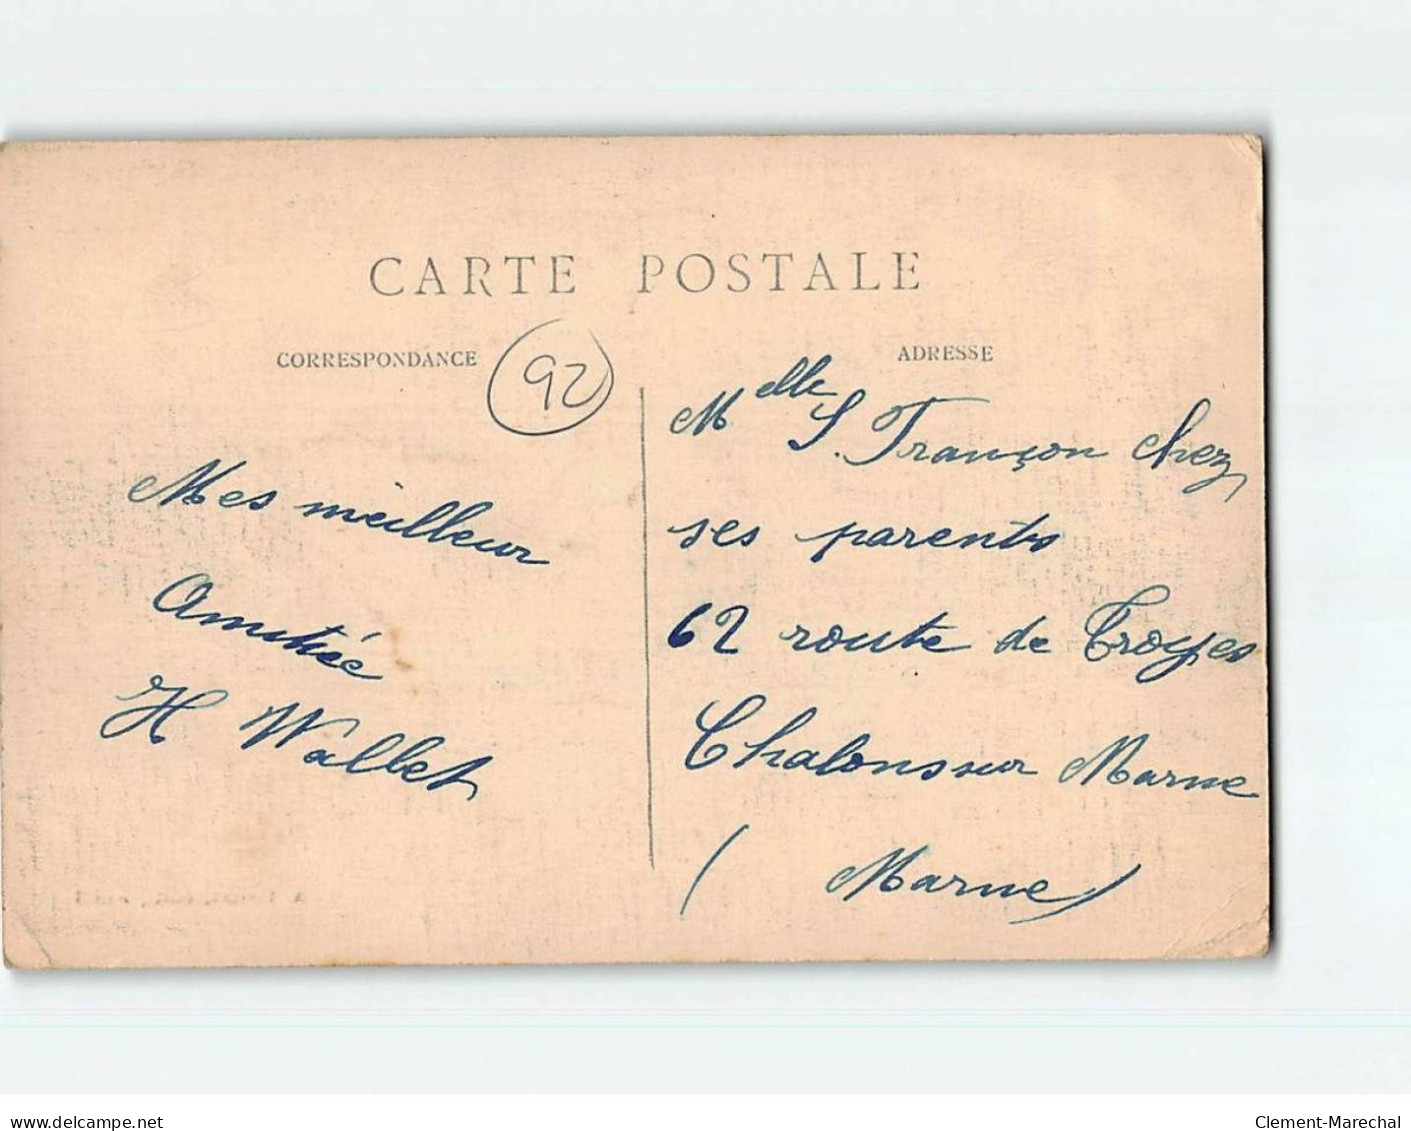 CARTE POSTALE
CORRESPONDANCE
92
ADRESSE
Mes meilleur
Amitiée
H Wallet
Melle S. Trançon chez
ses parents
62 route de Troyes
Chalons sur Marne
( Marne )
www.delcampe.net
Clement-Marechal